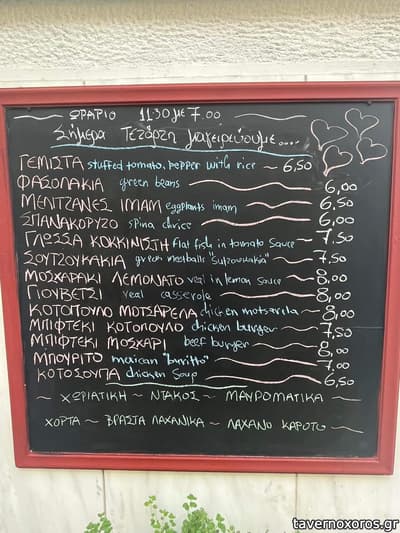 ΩΡΑΡΙΟ 11:30 με 7.00
Σήμερα Τετάρτη μαγειρεύουμε....
ΓΕΜΙΣΤΑ stuffed tomato, pepper with rice ~ 6,50
ΦΑΣΟΛΑΚΙΑ green beans 6,00
ΜΕΛΙΤΖΑΝΕΣ ΙΜΑΜ eggplants imam 6,50
ΣΠΑΝΑΚΟΡΥΖΟ 6,00
ΓΛΩΣΣΑ ΚΟΚΚΙΝΙΣΤΗ flat fish in tomato sauce 7,50
ΣΟΥΤΖΟΥΚΑΚΙΑ greek meatballs "Sutzoukakia" 7,50
ΜΟΣΧΑΡΑΚΙ ΛΕΜΟΝΑΤΟ veal in lemon sauce 8,00
ΓΙΟΥΒΕΤΣΙ veal casserole 8,00
ΚΟΤΟΠΟΥΛΟ ΜΟΤΣΑΡΕΛΑ chicken motsarela 8,00
ΜΠΙΦΤΕΚΙ ΚΟΤΟΠΟΥΛΟ chicken burger 7,50
ΜΠΙΦΤΕΚΙ ΜΟΣΧΑΡΙ beef burger 8,00
ΜΠΟΥΡΙΤΟ mexican "burritto" 7,00
ΚΟΤΟΣΟΥΠΑ chicken soup 6,50
~ ΧΩΡΙΑΤΙΚΗ ~ ΝΤΑΚΟΣ ~ ΜΑΥΡΟΜΑΤΙΚΑ ~
ΧΟΡΤΑ ~ ΒΡΑΣΤΑ ΛΑΧΑΝΙΚΑ ~ ΛΑΧΑΝΟ ΚΑΡΟΤΟ ~
tavernoxoros.gr